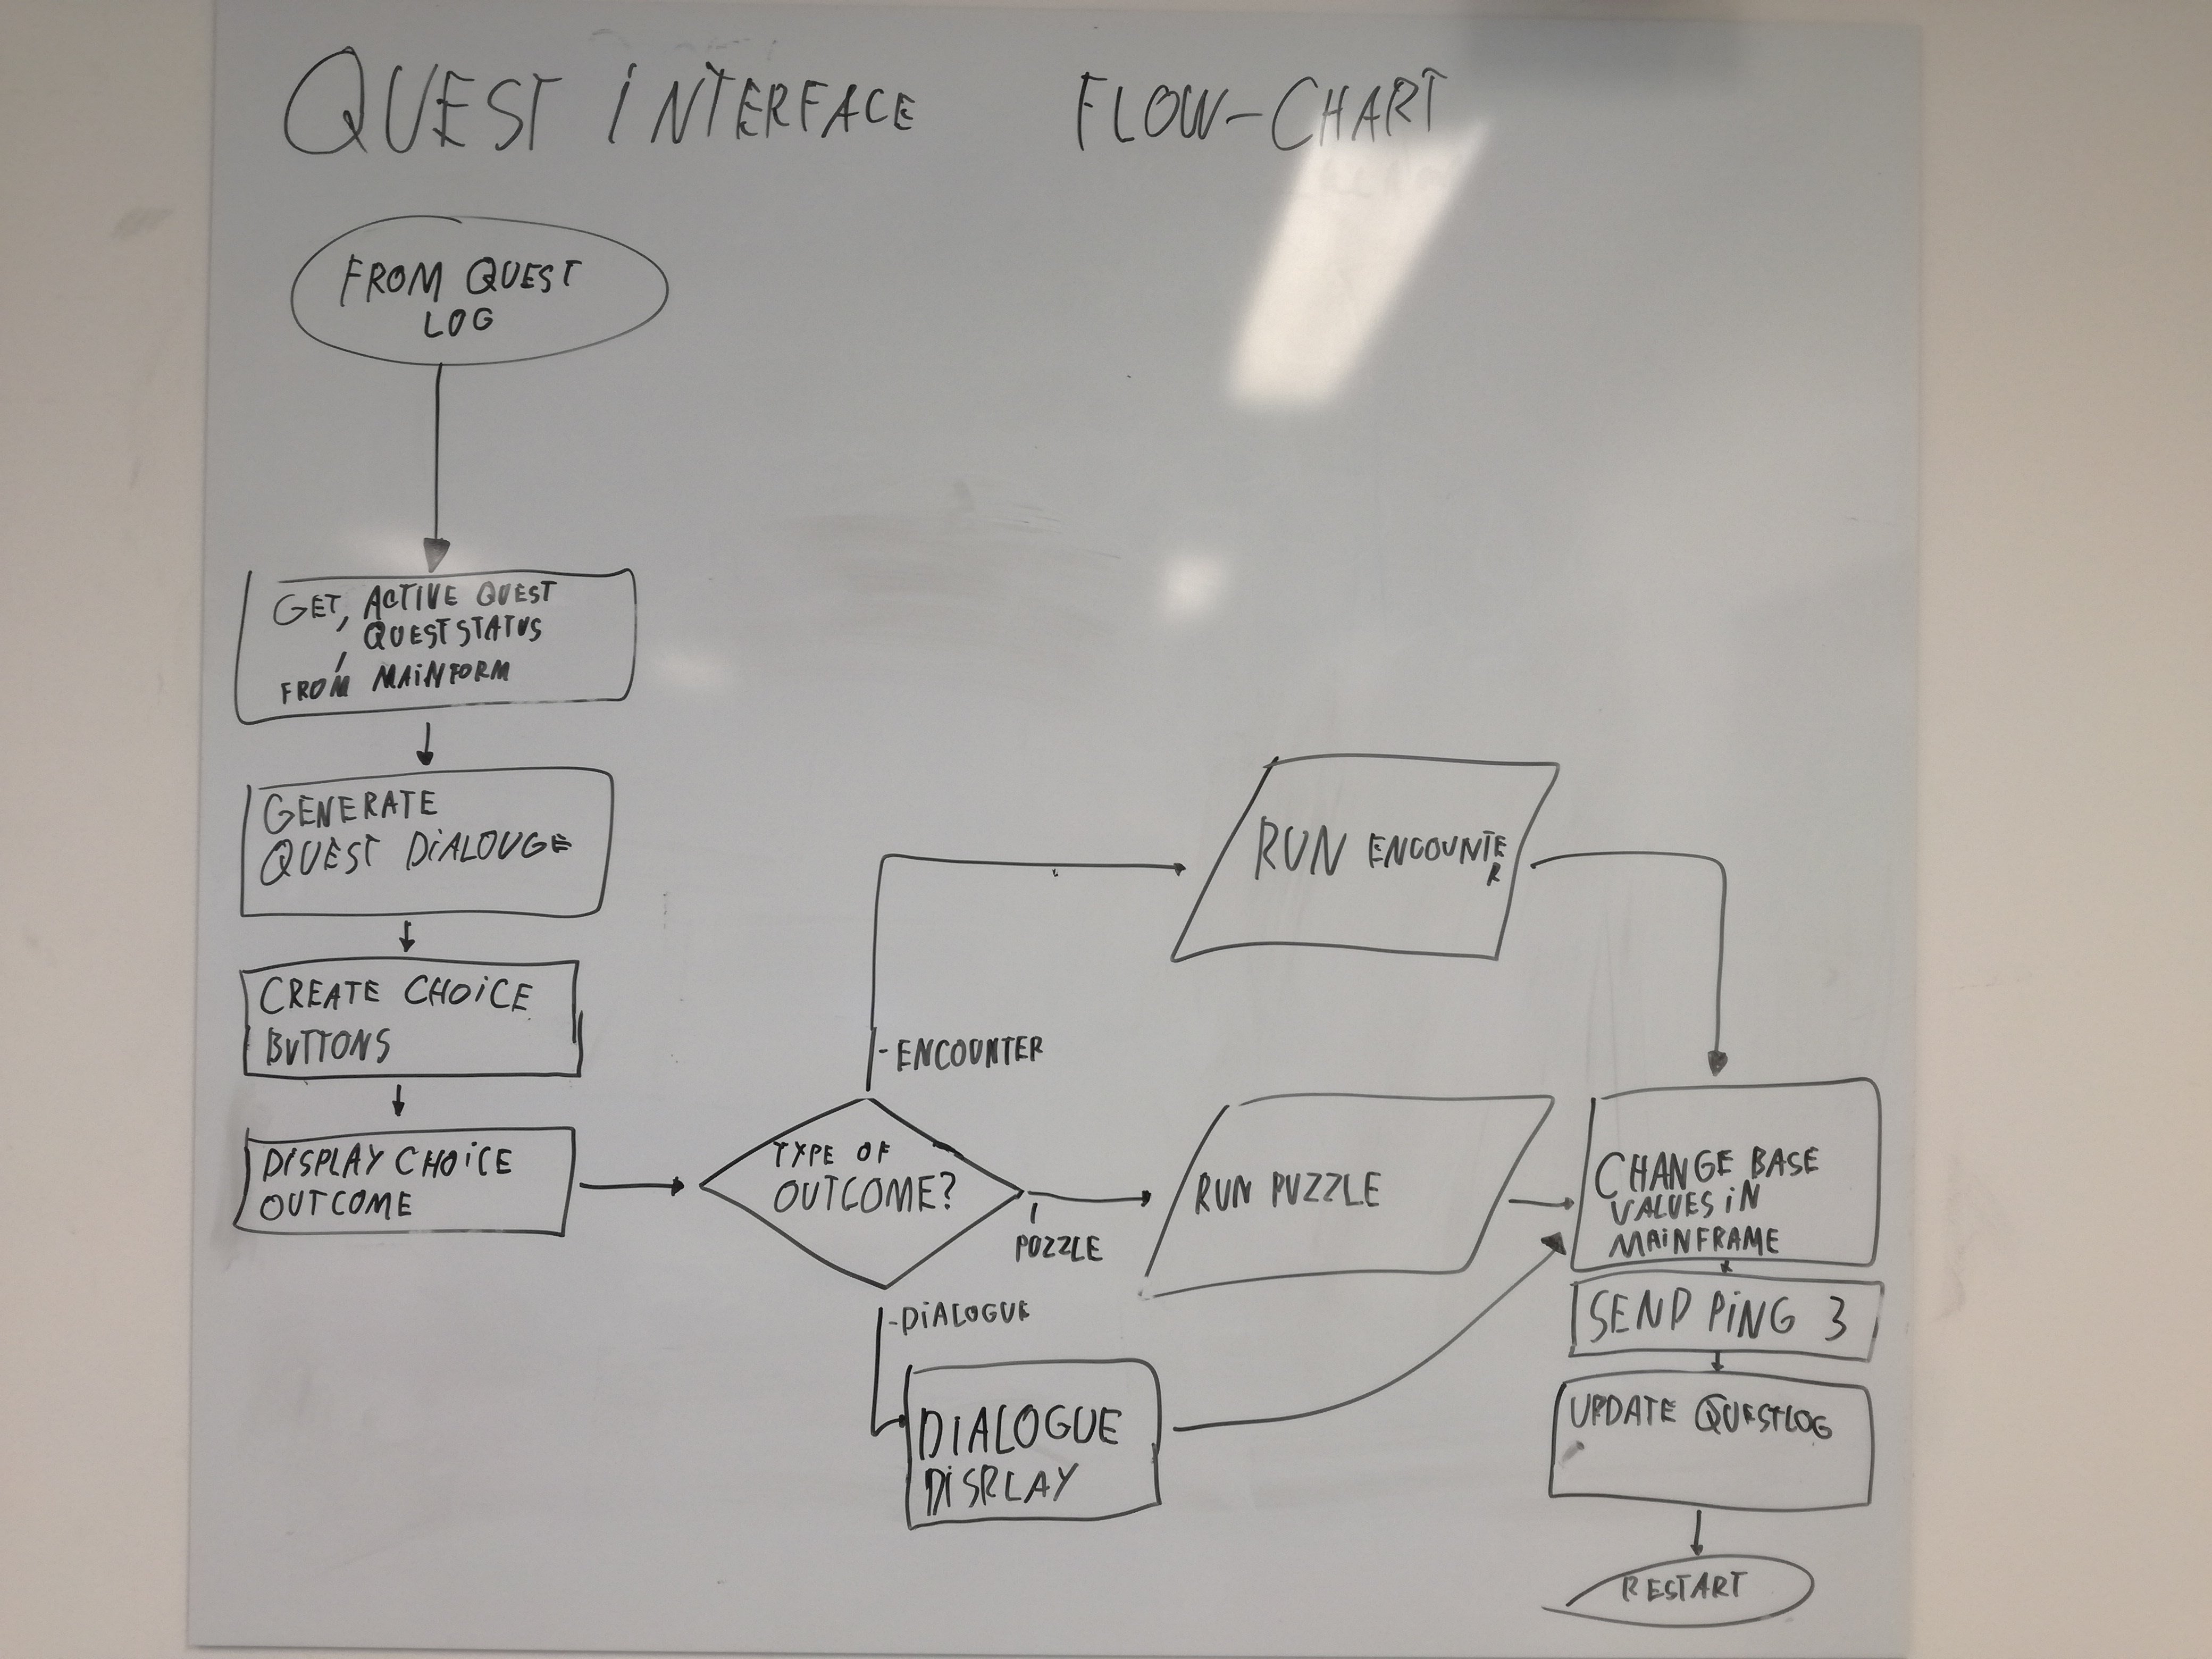 QUEST INTERFACE FLOW-CHART
FROM QUEST
LOG
GET, ACTIVE QUEST
, QUESTSTATUS
FROM MAINFORM
GENERATE
QUEST DIALOUGE
CREATE CHOICE
BUTTONS
DISPLAY CHOICE
OUTCOME
TYPE OF
OUTCOME?
-ENCOUNTER
RUN ENCOUNTE
R
PUZZLE
RUN PUZZLE
-DIALOGUE
DIALOGUE
DISPLAY
CHANGE BASE
VALUES IN
MAINFRAME
SEND PING 3
UPDATE QUESTLOG
RESTART